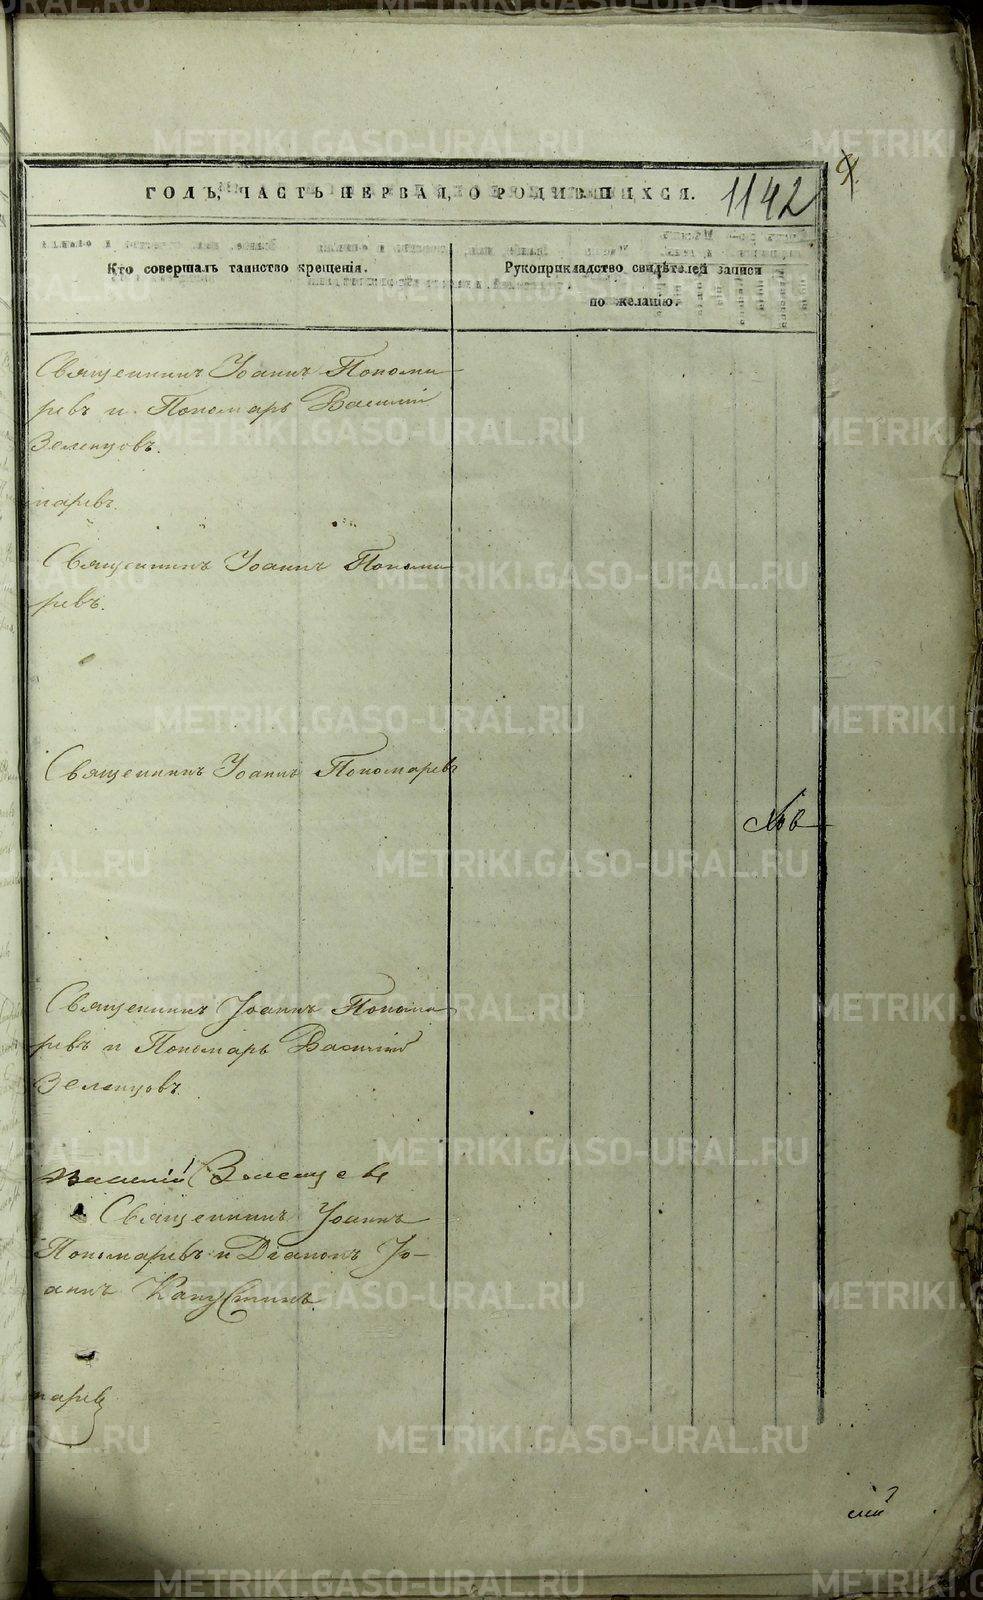 ГОДЪ, ЧАСТЬ ПЕРВАЯ, О РОДИВШИХСЯ. 1142
Кто совершалъ таинство крещенія.
Рукоприкладство свидѣтелей записи
по желанію.
Священникъ Іоаннъ Понома
ревъ и Пономарь Василій
Зеленцовъ.
маревъ.
Священникъ Іоаннъ Понома
ревъ.
Священникъ Іоаннъ Пономаревъ
Священникъ Іоаннъ Понома
ревъ и Пономарь Василій
Зеленцовъ.
Василій Зеленцовъ
Священникъ Іоаннъ
Пономаревъ и Діаконъ Іо-
аннъ Капустинъ.
маревъ
METRIKI.GASO-URAL.RU